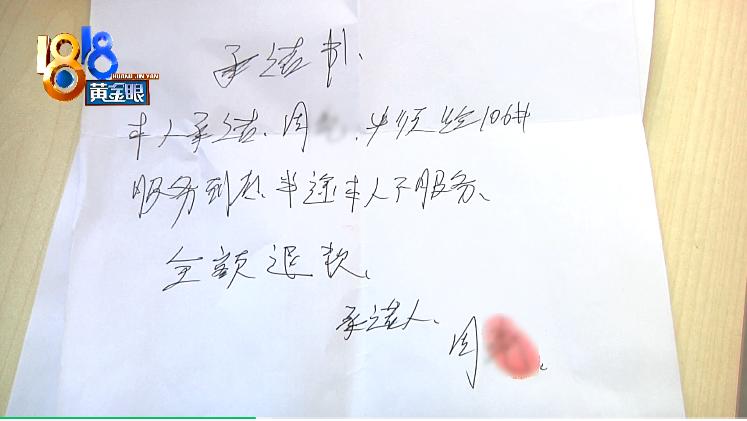 1818
HUANG JIN YAN
黄金眼
承诺书、
本人承诺、周 、必须给106#
服务到 半途本人不服务、
全额退款、
承诺人、
周